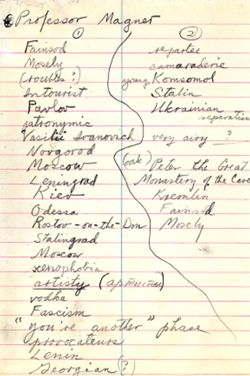 Professor Magnet
①
Fainsod
Mosely
(roubles?)
Intourist
Pavlov
patronymic
Vasilii Ivanovich
Novgorod
Moscow
Leningrad
Kiev
Odessa
Rostov-on-the-Don
Stalingrad
Moscow
xenophobia
artisty
vodka
Fascism
"you're another" phase
provocateurs
Lenin
Georgian (?)
②
repartee
camaraderie
young Komsomol
Stalin
Ukrainian
separation
very airy ?
(oak) Peter the Great
Monastery of the Cave
Kremlin
Fainsod
Mosely